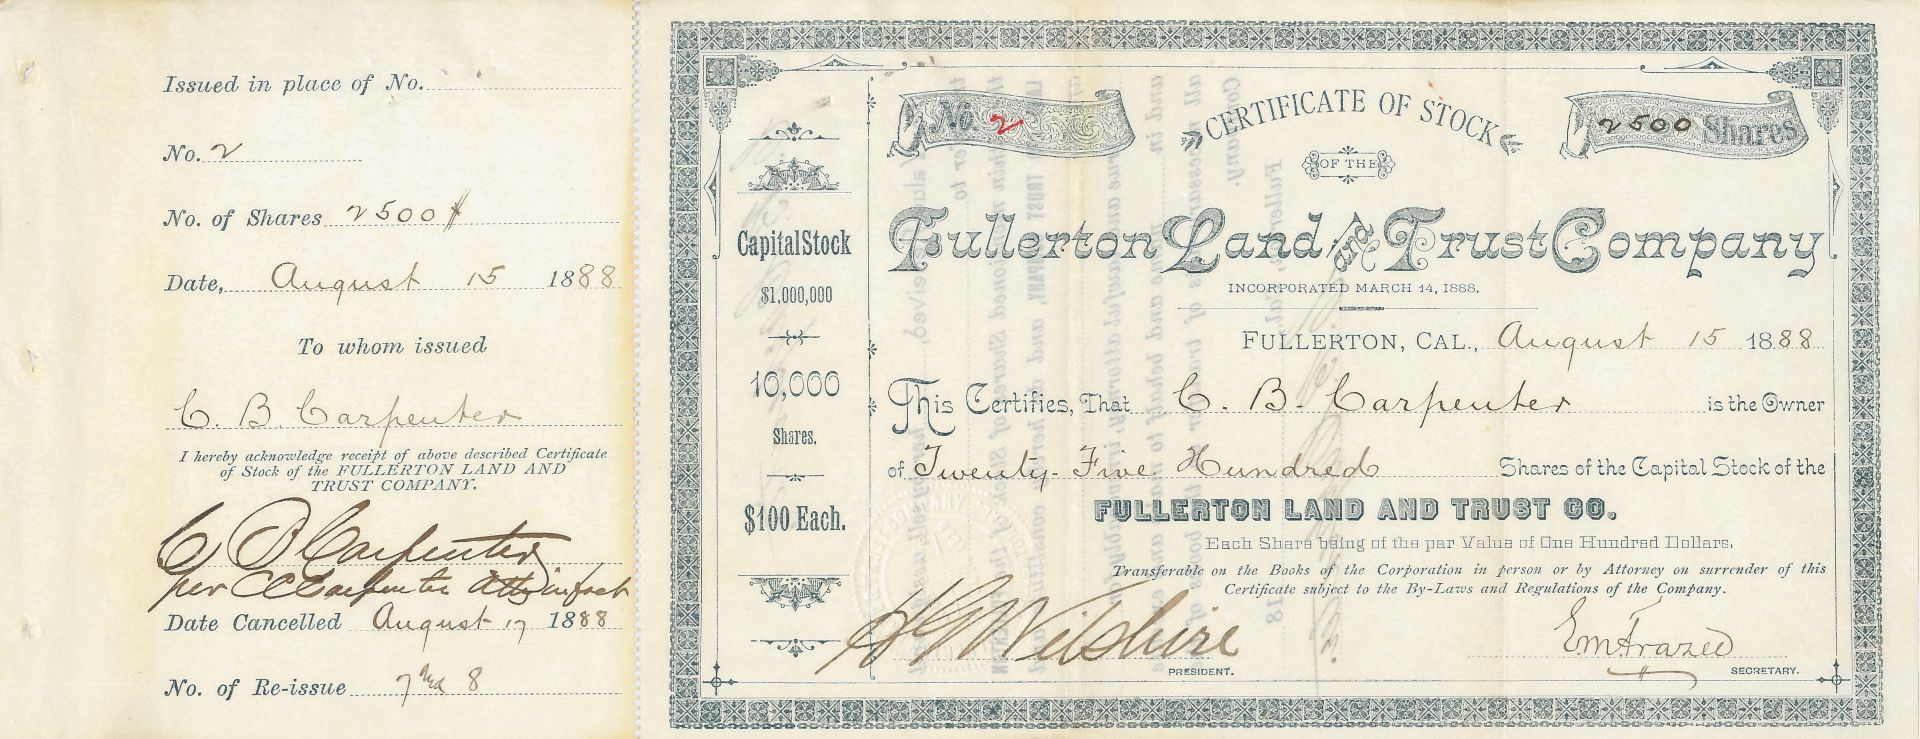 Issued in place of No.
No. 2
No. of Shares 2500
Date, August 15 1888
To whom issued
C. B. Carpenter
I hereby acknowledge receipt of above described Certificate
of Stock of the FULLERTON LAND AND
TRUST COMPANY.
C B Carpenter
per C C Carpenter Atty in fact
Date Cancelled August 17 1888
No. of Re-issue 7 and 8
Capital Stock
$1,000,000
10,000
Shares.
$100 Each.
No. 2
CERTIFICATE OF STOCK
2500 Shares
OF THE
Fullerton Land and Trust Company
INCORPORATED MARCH 14, 1888.
FULLERTON, CAL., August 15 1888
This Certifies, That C. B. Carpenter is the Owner
of Twenty-Five Hundred Shares of the Capital Stock of the
FULLERTON LAND AND TRUST CO.
Each Share being of the par Value of One Hundred Dollars.
Transferable on the Books of the Corporation in person or by Attorney on surrender of this
Certificate subject to the By-Laws and Regulations of the Company.
H G Wilshire
PRESIDENT.
E M Frazee
SECRETARY.